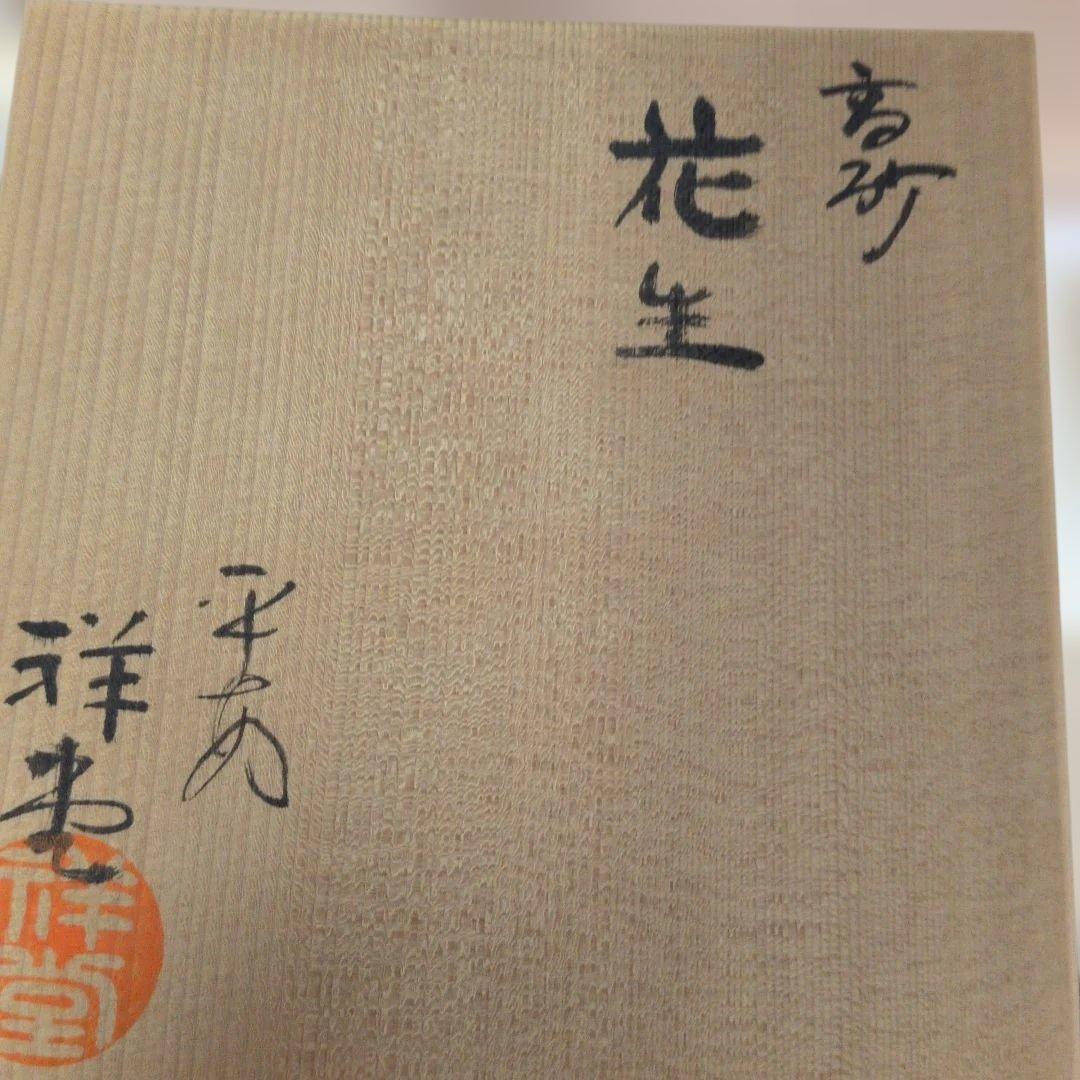 高砂
花生
平安
祥堂
祥堂